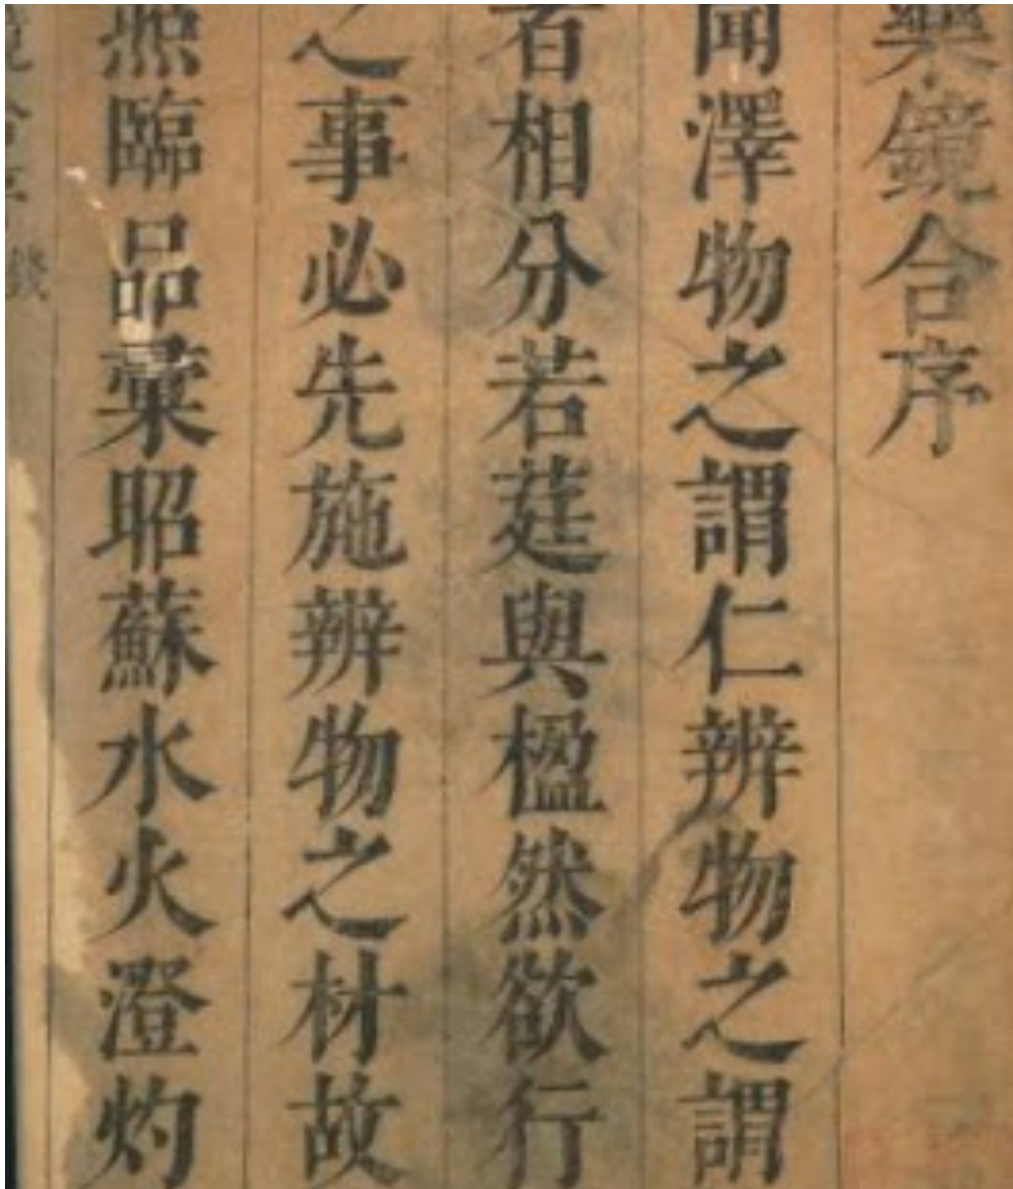 藥鏡合序
聞澤物之謂仁辨物之謂
者相分若莛與楹然欲行
之事必先施辨物之材故
照臨品彙昭蘇水火澄灼